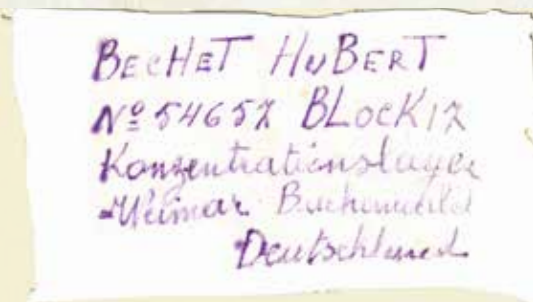 BECHET HUBERT
Nº 54657 BLOCK 17
Konzentrationslager
-Weimar. Buchenwald
Deutschland